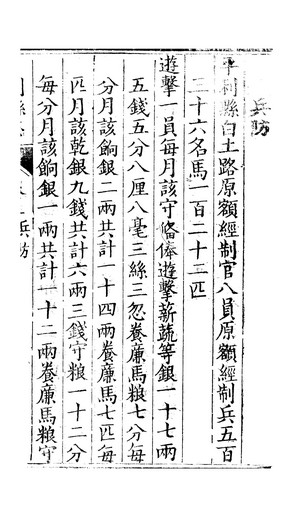 兵防
平利縣白土路原額經制官八員原額經制兵五百
三十六名馬一百二十二匹
遊擊一員每月該守俻俸遊擊薪蔬等銀一十七兩
五錢五分八厘八毫三絲三忽養廉馬粮七分每
分月該餉銀二兩共計一十四兩養廉馬七匹每
匹月該乾銀九錢共計六兩三錢守粮一十二分
每分月該餉銀一兩共計一十二兩養廉馬粮守
兵防